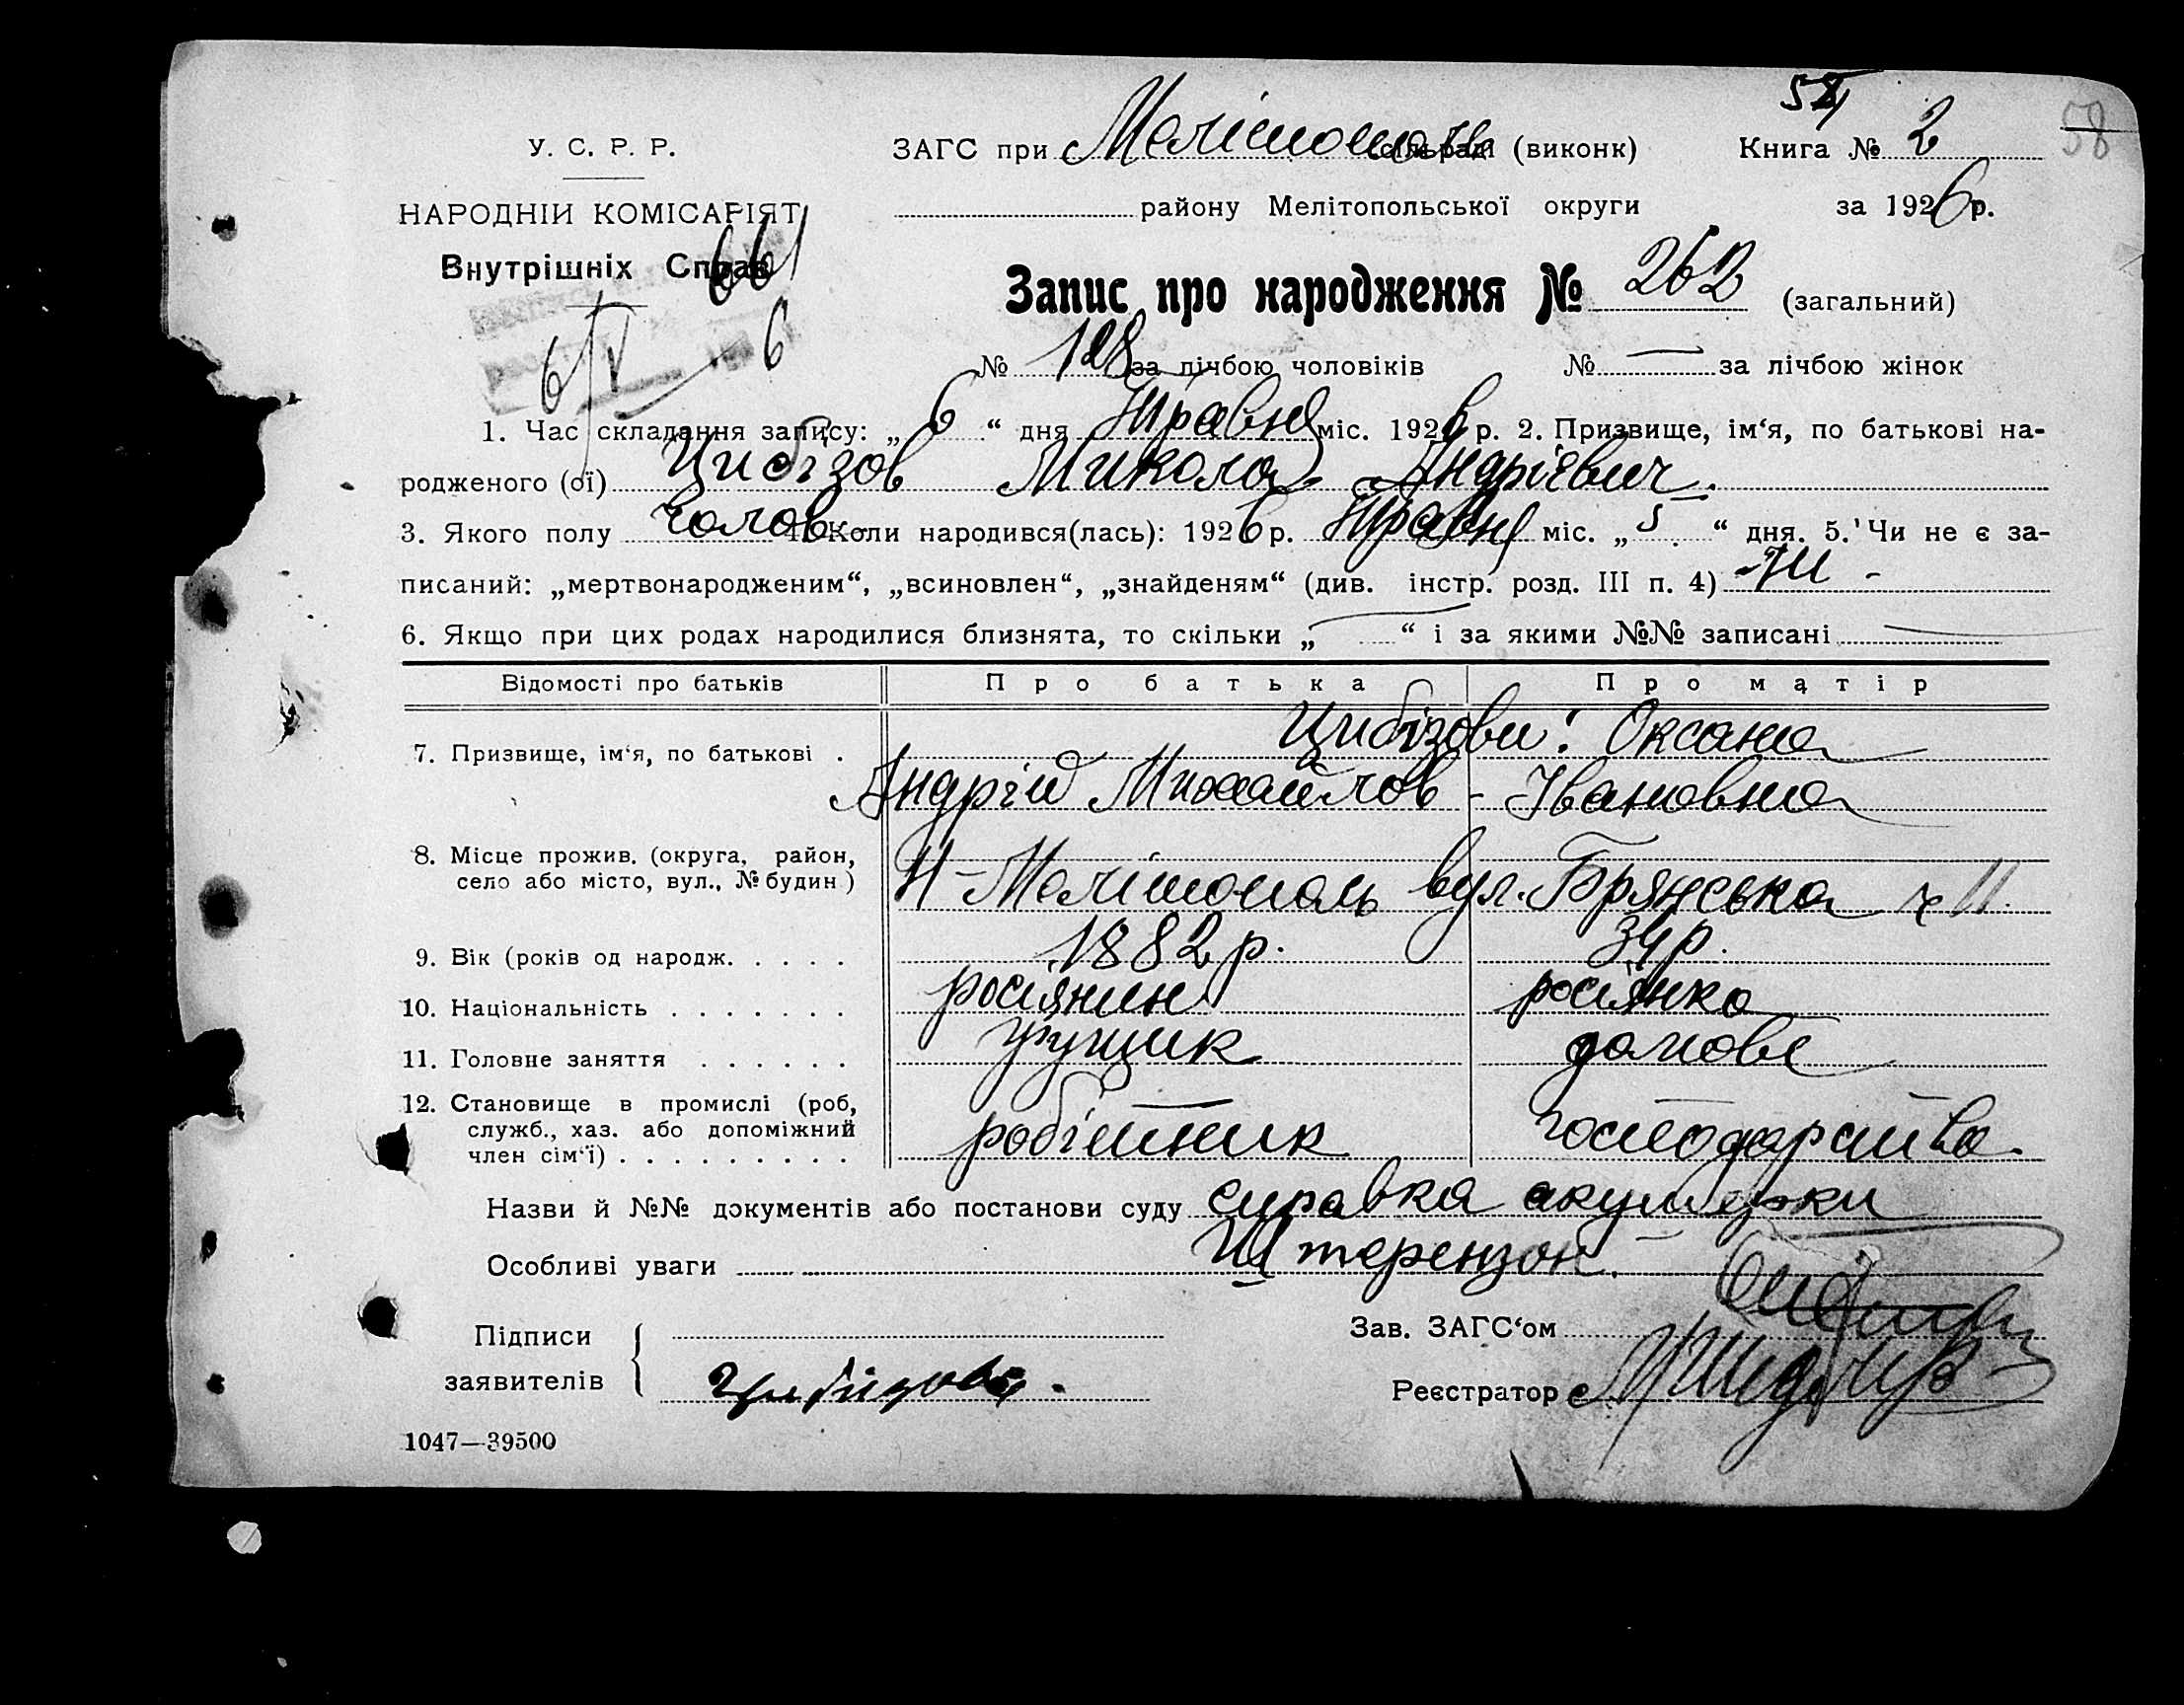 У. С. Р. Р.
НАРОДНІЙ КОМІСАРІЯТ
Внутрішніх Справ
661
6/V 6
ЗАГС при Мелітополь сільраді (виконк)
Книга № 2
58
району Мелітопольської округи
за 1926 р.
Запис про народження № 262 (загальний)
№ 128 за лічбою чоловіків № — за лічбою жінок
1. Час складання запису: „ 6 “ дня Травня міс. 1926 р. 2. Призвище, ім‘я, по батькові на-
родженого (ої) Цибізов Микола Андрієвич.
3. Якого полу чолов. 4. Коли народився(лась): 1926 р. Травня міс. „ 5 “ дня. 5. Чи не є за-
писаний: „мертвонародженим“, „всиновлен“, „знайденям“ (див. інстр. розд. III п. 4) - Ні -
6. Якщо при цих родах народилися близнята, то скільки „ — “ і за якими №№ записані —
Відомості про батьків Про батька Про матір
7. Призвище, ім‘я, по батькові . Цибізови: Оксана
Андрій Михайлов - Івановна
8. Місце прожив. (округа, район,
село або місто, вул., № будин) Н-Мелітополь вул. Брянська ч 11.
9. Вік (років од народж. . . . . 1882 р. 34 р.
10. Національність . . . . . . . росіянин росіянка
11. Головне заняття . . . . . . грущик домове
12. Становище в промислі (роб,
служб., хаз. або допоміжний
член сім‘ї) . . . . . . . . . робітник господарство.
Назви й №№ документів або постанови суду справка акушерки
Особливі уваги Штерензон.
Підписи
заявителів Цибизова.
Зав. ЗАГС‘ом
Реєстратор
1047—39500